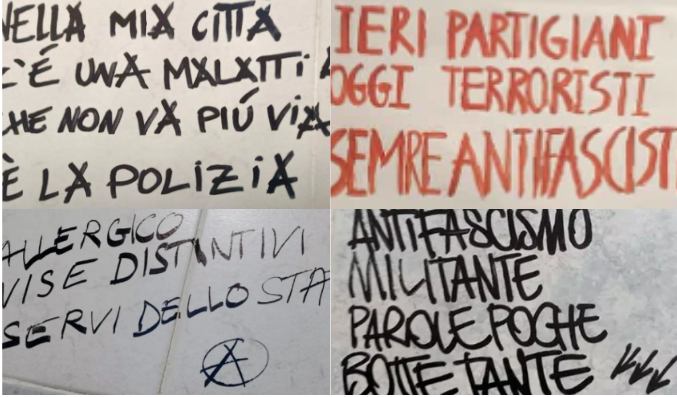 NELLA MIA CITTA
C'É UNA MALATTIA
CHE NON VA PIÚ VIA
È LA POLIZIA
IERI PARTIGIANI
OGGI TERRORISTI
SEMRE ANTIFASCISTI
ALLERGICO
DIVISE DISTINTIVI
SERVI DELLO STATO
A
ANTIFASCISMO
MILITANTE
PAROLE POCHE
BOTTE TANTE